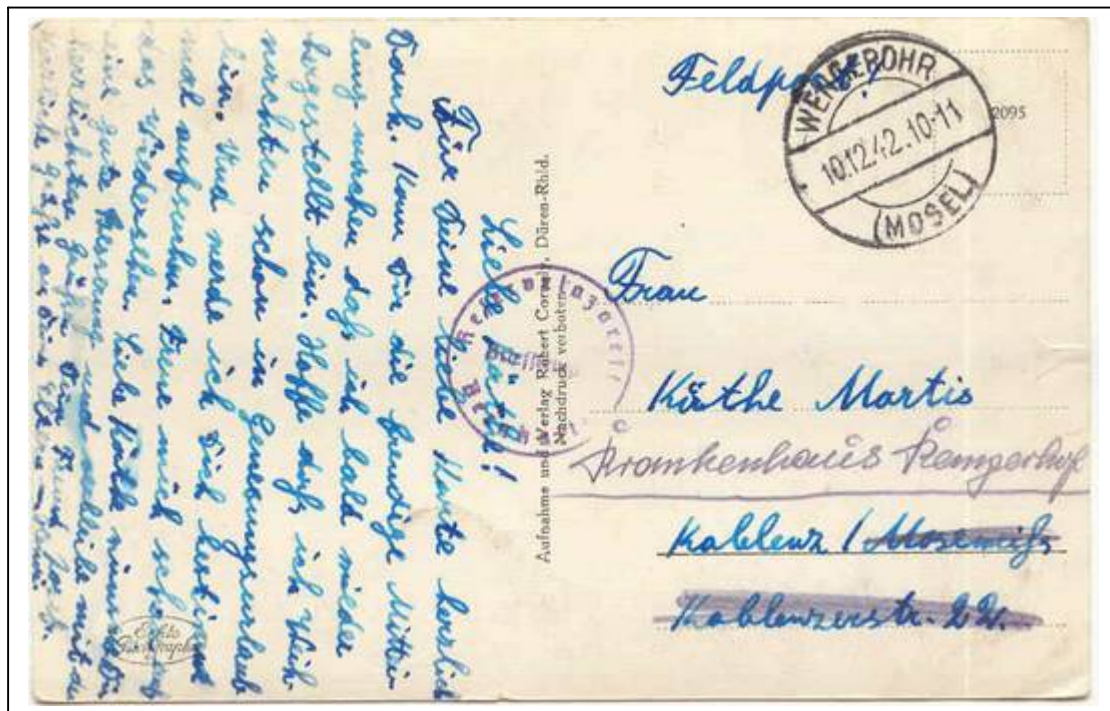 Feldpost!
WENGEROHR
10.12.42.10-11
(MOSEL)
2095
Frau
Käthe Martis
Krankenhaus Kemperhof
Koblenz / Moselweiß
Koblenzerstr.
Reservelazarett
Aufnahme und Verlag Robert Düren-Rhld.
Nachdruck verboten
Liebe Käthe!
Für Deine liebe Karte herzlich
Dank. Kann Dir die freudige Mittei-
lung machen daß ich bald wieder
hergestellt bin. Hoffe daß ich Weih-
nachten schon in Genesungsurlaub
bin. Und werde ich Dich bestimmt
mal aufsuchen. Freue mich schon auf
das Wiedersehen. Liebe Käthe wünsche Dir
eine gute Besserung und verbleibe mit den
herzlichsten Grüßen Dein Freund
Herzliche Grüße an Deine Eltern
Echte
Photographie